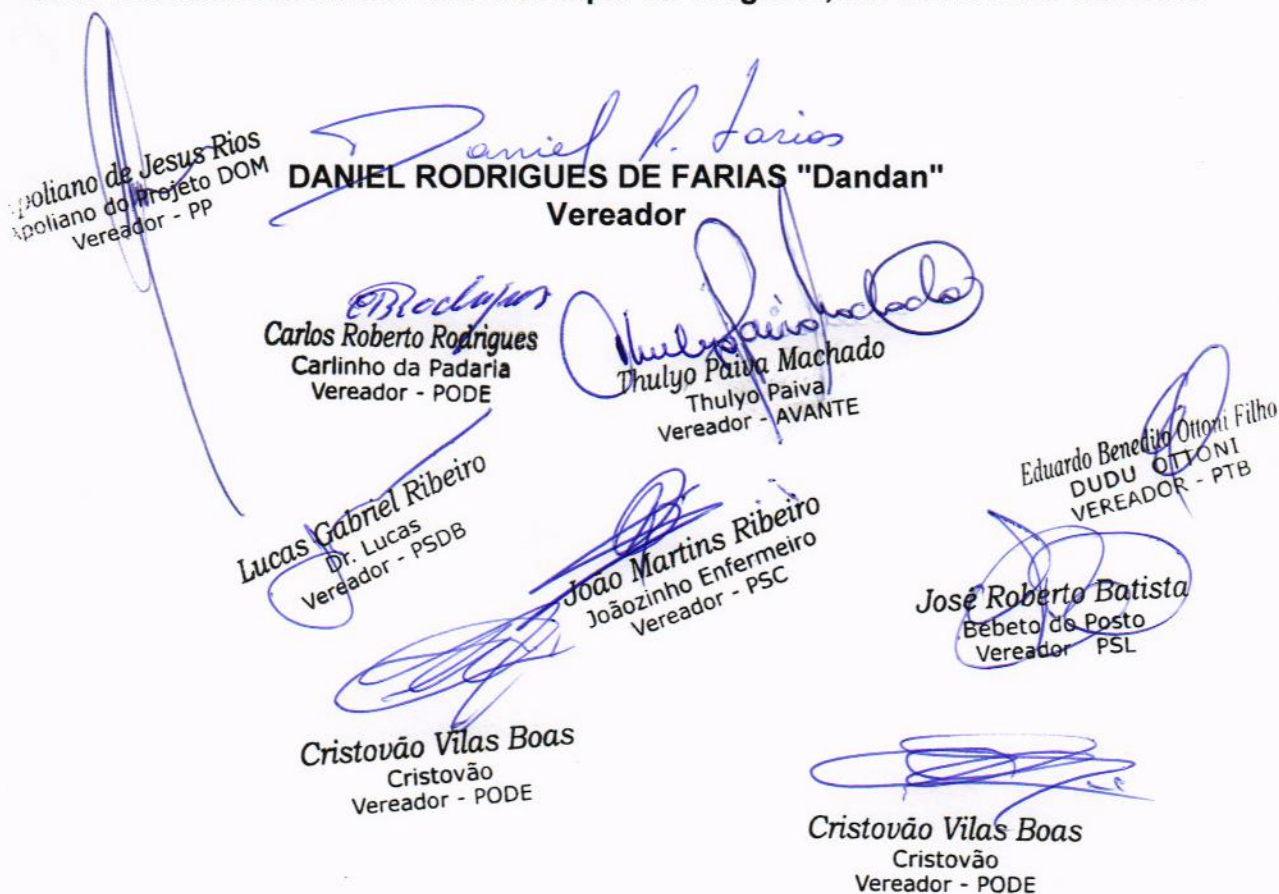 Daniel R. Farias
poliano de Jesus Rios
poliano do Projeto DOM
Vereador - PP
DANIEL RODRIGUES DE FARIAS "Dandan"
Vereador
Carlos Roberto Rodrigues
Carlinho da Padaria
Vereador - PODE
Thulyo Paiva Machado
Thulyo Paiva Machado
Thulyo Paiva
Vereador - AVANTE
Eduardo Benedito Ottoni Filho
DUDU OTTONI
VEREADOR - PTB
Lucas Gabriel Ribeiro
Dr. Lucas
Vereador - PSDB
João Martins Ribeiro
Joãozinho Enfermeiro
Vereador - PSC
José Roberto Batista
Bebeto do Posto
Vereador PSL
Cristovão Vilas Boas
Cristovão
Vereador - PODE
Cristovão Vilas Boas
Cristovão
Vereador - PODE